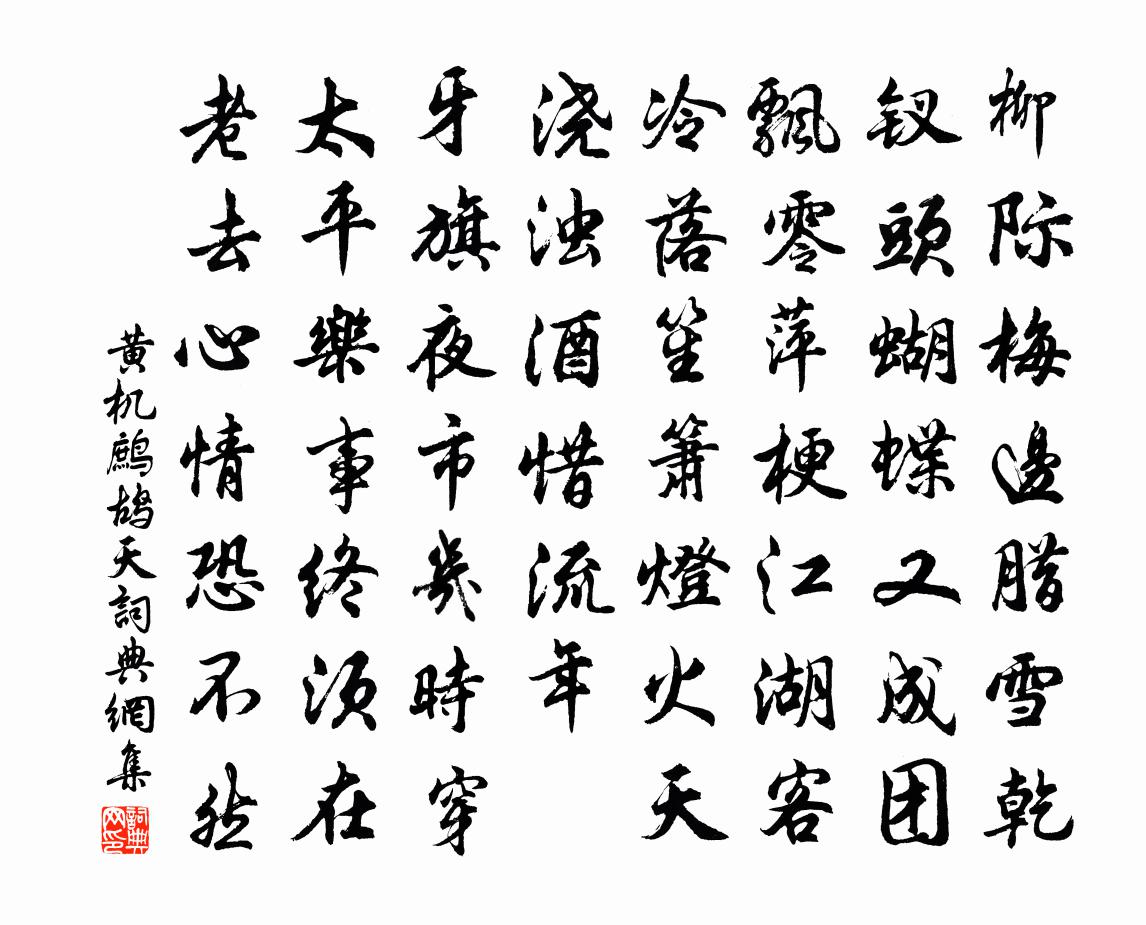 柳际梅邊腊雪乾
钗頭蝴蝶又成团
飄零萍梗江湖客
冷落笙簫燈火天
浇浊酒惜流年
牙旗夜市幾時穿
太平樂事终须在
老去心情恐不然
黄机鷓鸪天詞典網集
詞典网印